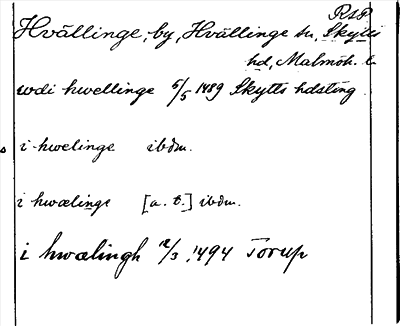 RSP
Hvällinge, by, Hvällinge sn, Skytts
hd, Malmöh. l.
wdi hwellinge 5/5 1489 Skytts hdsting.
i hwelinge ibdm.
i hwælinge [a. t.] ibdm.
i hwælingh 12/3 1494 Torup